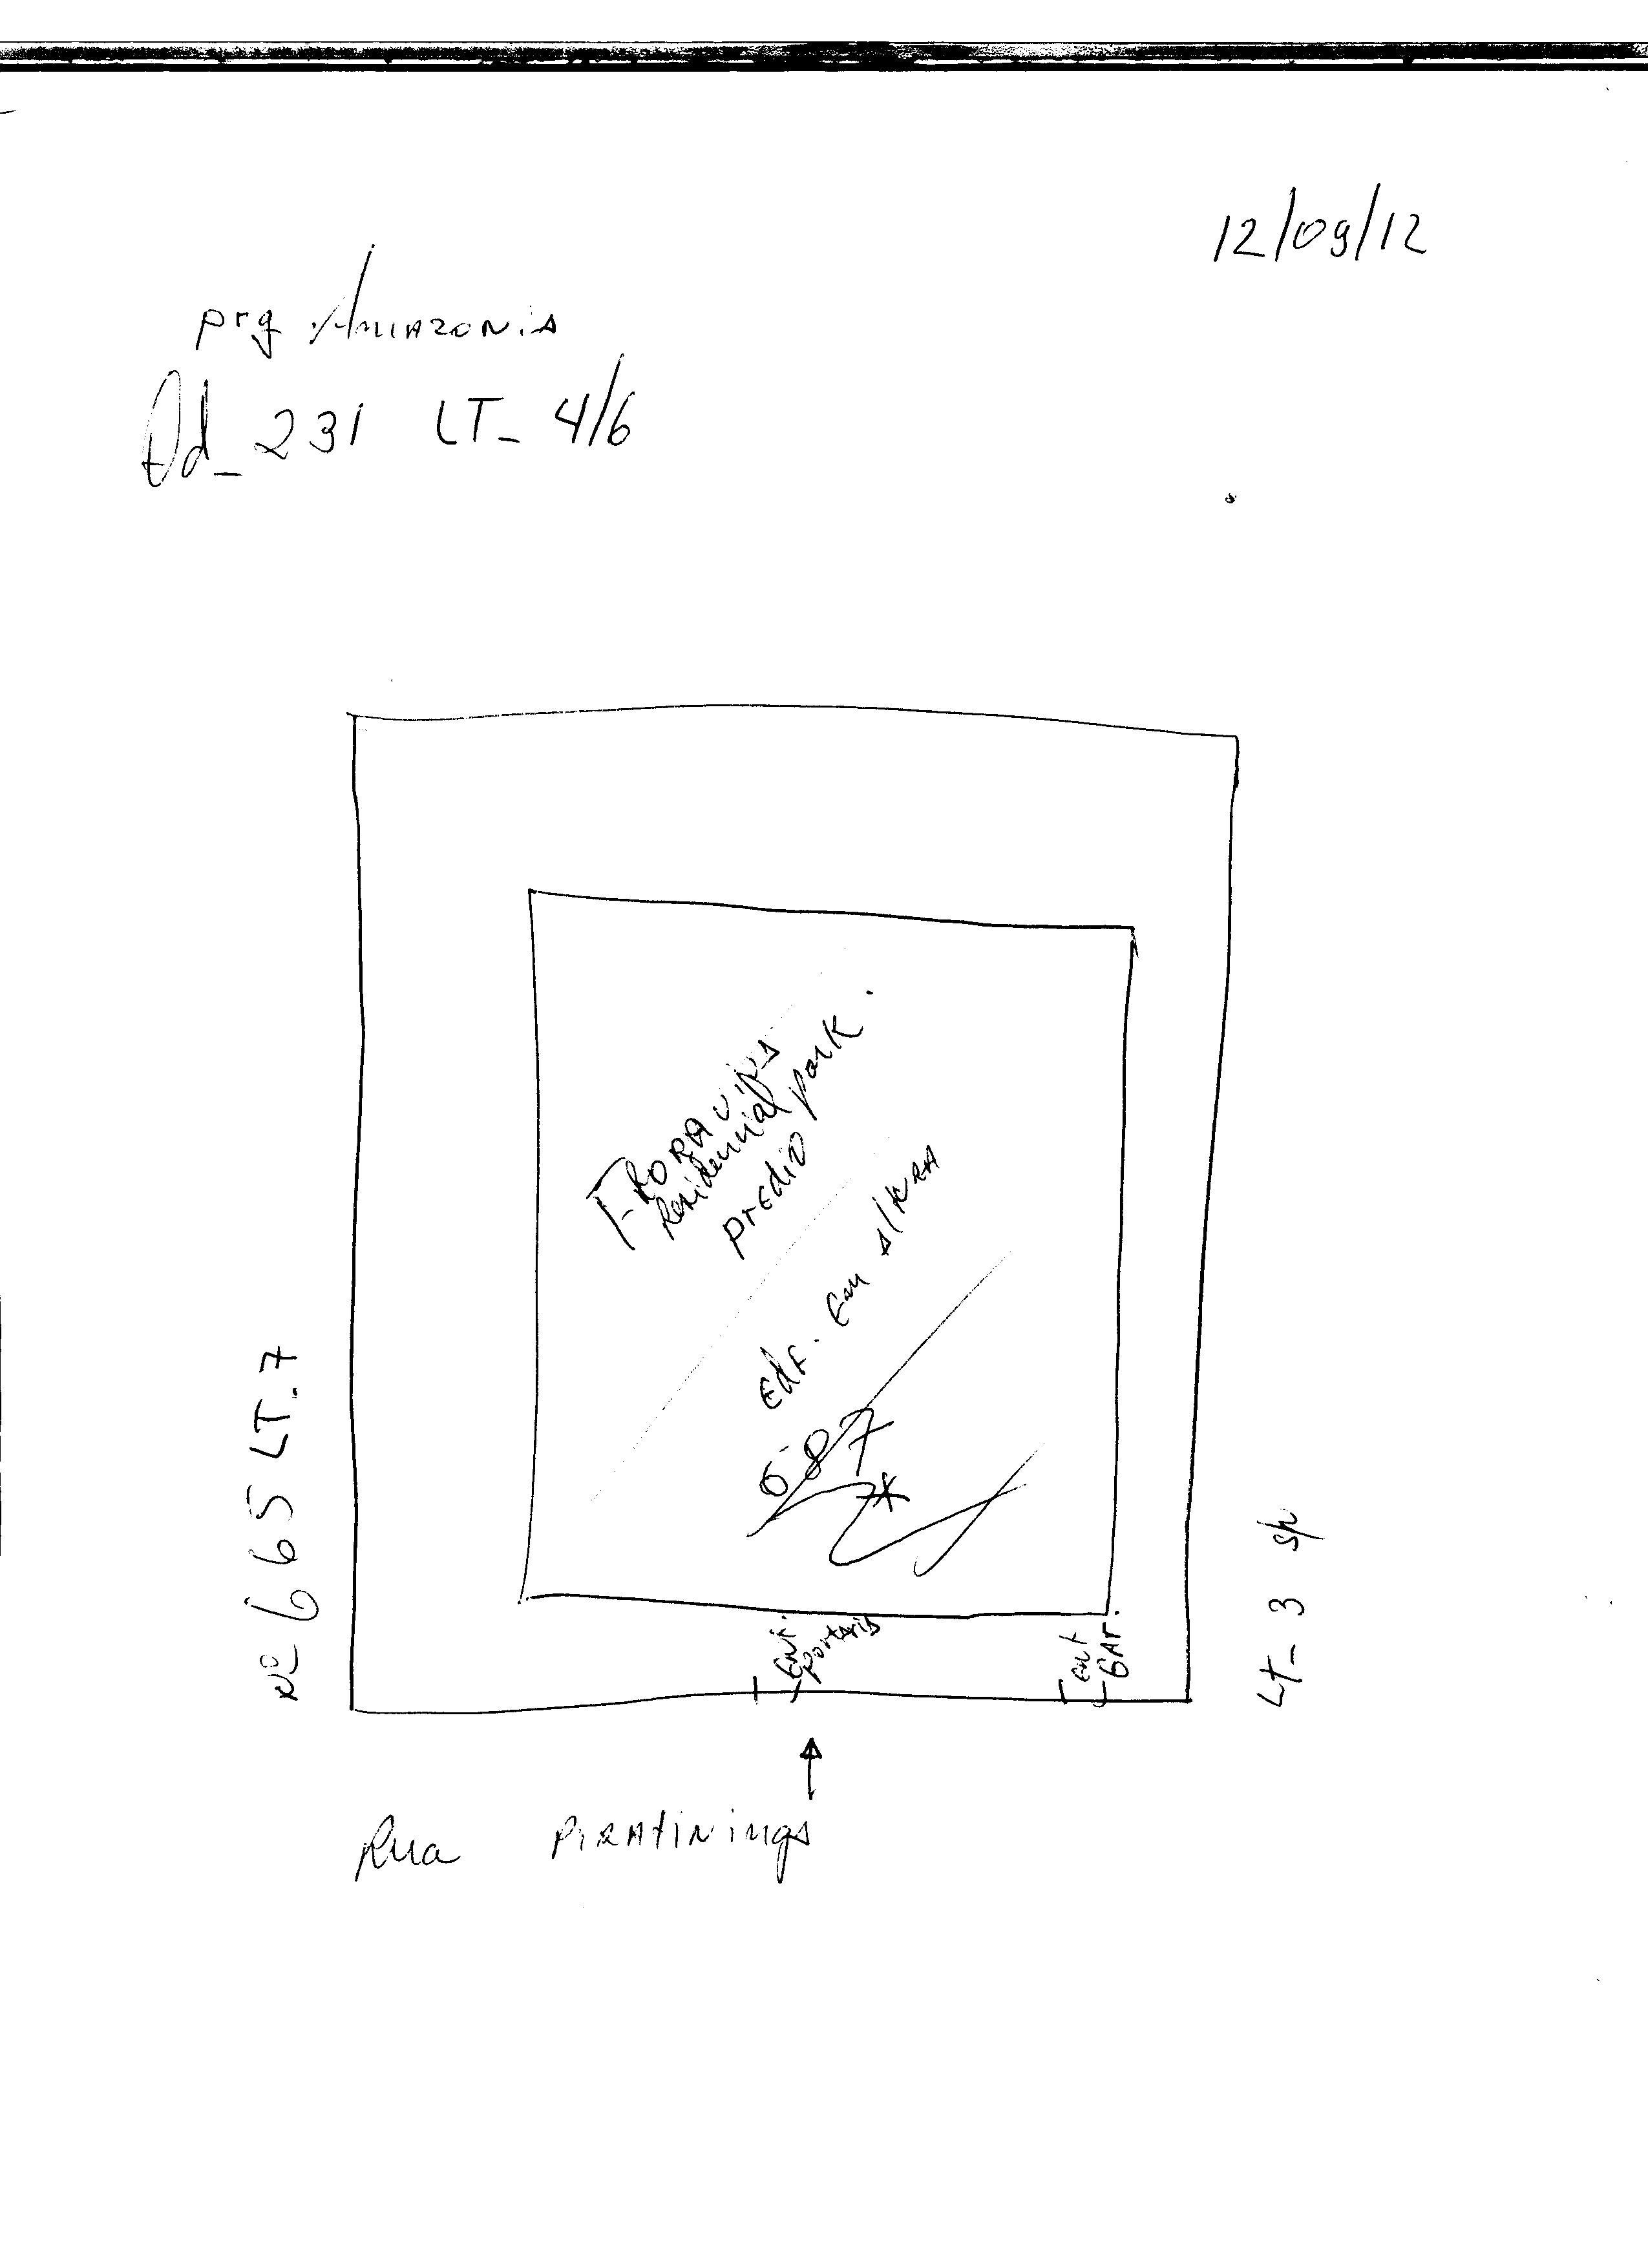 12/09/12
prq Amazonia
Qd_ 231 LT_ 4/6
Residencial park.
predio
Edf. Em
687
Nº 665 LT_7
LT_ 3 S/n
Ent. portaria
Ent GAr.
Rua Piratininga